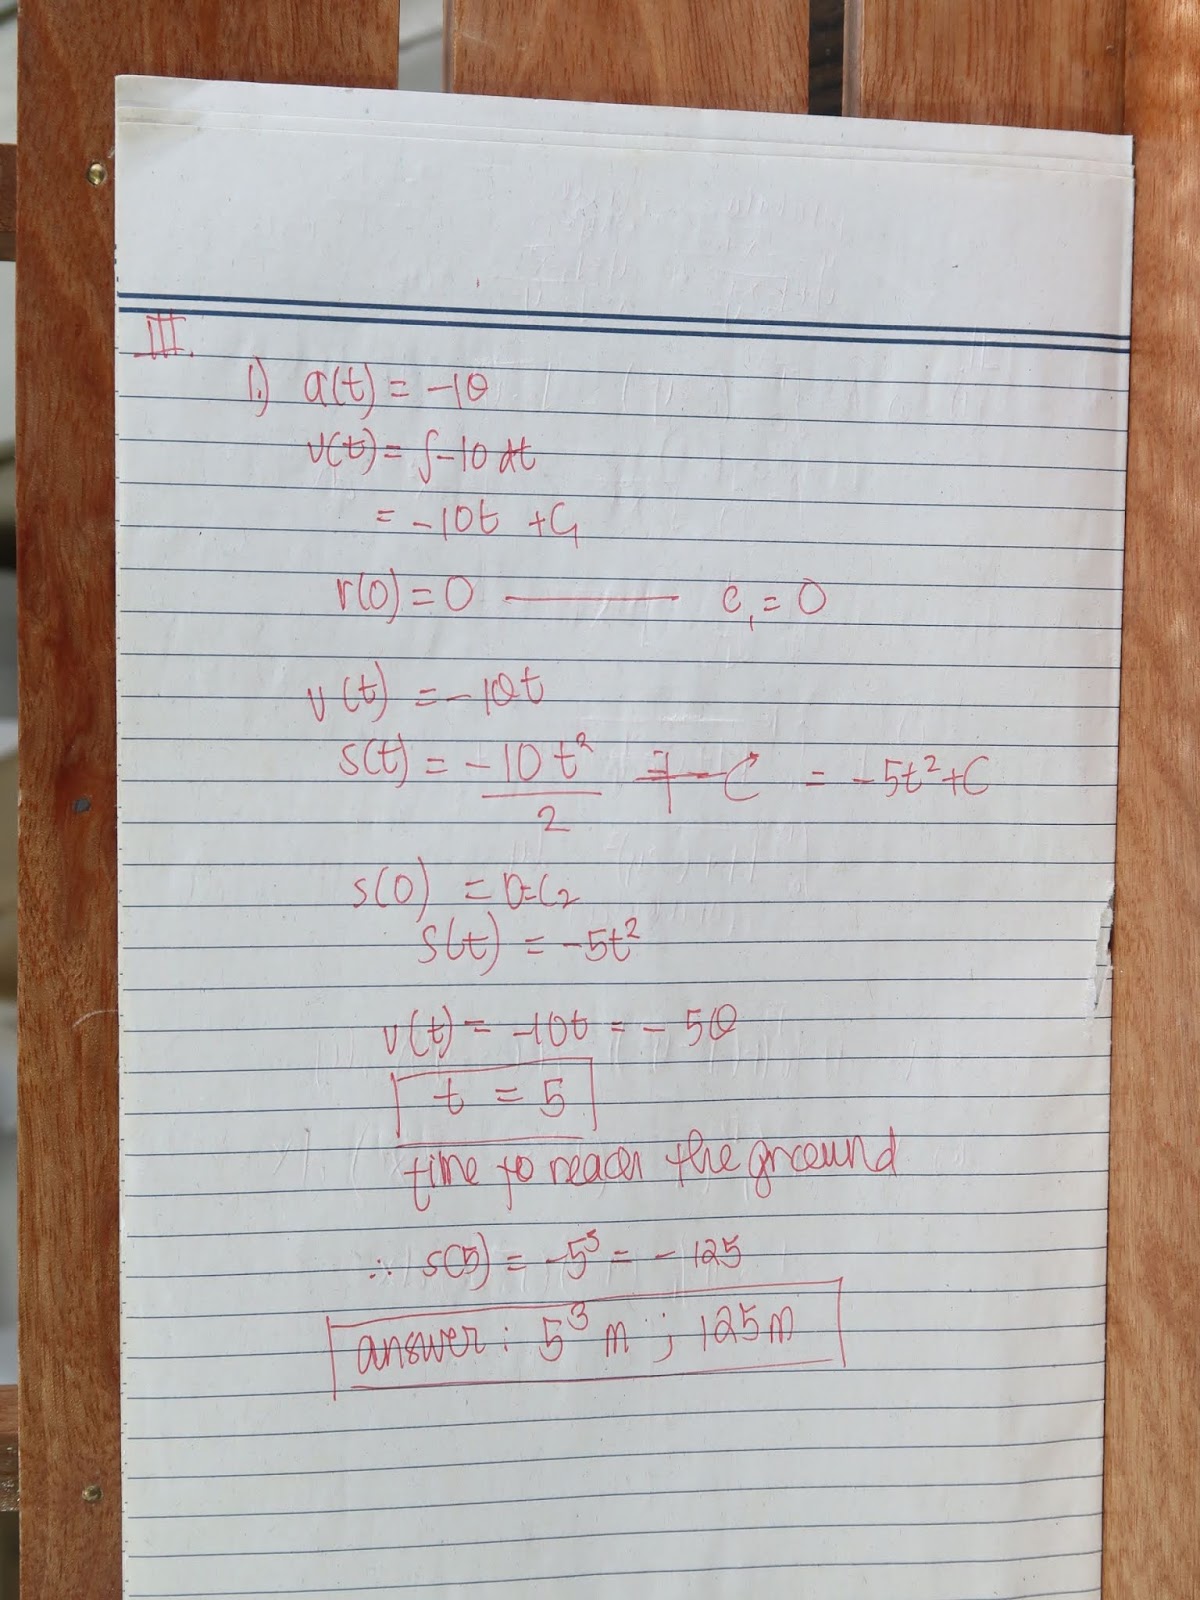 III.
1.) a(t) = -10
v(t) = ∫-10 dt
= -10t + C1
r(0) = 0 ——— c1 = 0
v(t) = -10t
s(t) = -10t²/2 = -5t² + C
s(0) = 0 = C2
s(t) = -5t²
v(t) = -10t = -50
t = 5
time to reach the ground
∴ s(5) = -5³ = -125
answer: 5³ m ; 125 m